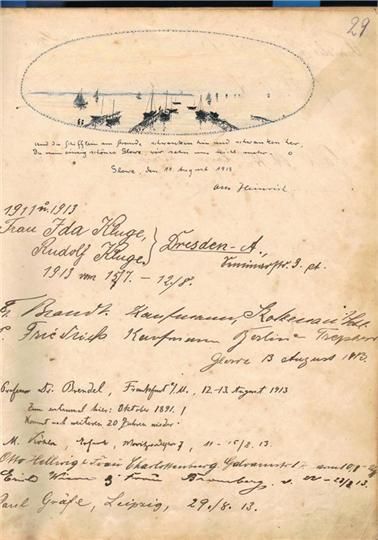 29
und die Schifflein am Strande schwanken hin und schwanken her,
Du meine einzig schöne Glowe, wir sehn uns nicht mehr.
Glowe, den 11 August 1913
Heinrich
1911 u. 1913
Frau Ida Kluge,
Rudolf Kluge
Dresden-A,
Seminarstr. 3. pt.
1913 vom 15/7. – 12/8.
Brandt Kaufmann,
Friedrich Kaufmann Berlin Treptow
Glowe 13 August 1913.
Professor Dr. Brendel, Frankfurt a/M., 12.-13. August 1913
Zum erstenmal hier: Oktober 1891. !
Kommt nach weiteren 20 Jahren wieder!
M. Erfurt, 7, 11 – 15/8. 13.
Otto Hellwig & Frau Charlottenburg, Galvanistr.
Emil & Frau Bromberg,
Paul Gräfe, Leipzig, 29./8. 13.